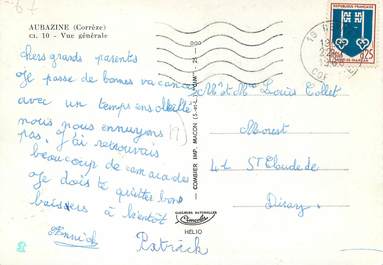 AUBAZINE (Corrèze)
ct. 10 - Vue générale
chers grands parents
Je passe de bonnes vacances
avec un temps ensoleillé
nous nous ennuyons
pas. J'ai retrouvais
beaucoup de camarades
Je dois te quitter bons
baissers à bientôt
Patrick
COMBIER IMP. MACON (S.-&-L.)
COULEURS NATURELLES
HÉLIO
Mr et Mme Louis Collet
St Claude de
Diray
RÉPUBLIQUE FRANÇAISE
0,25